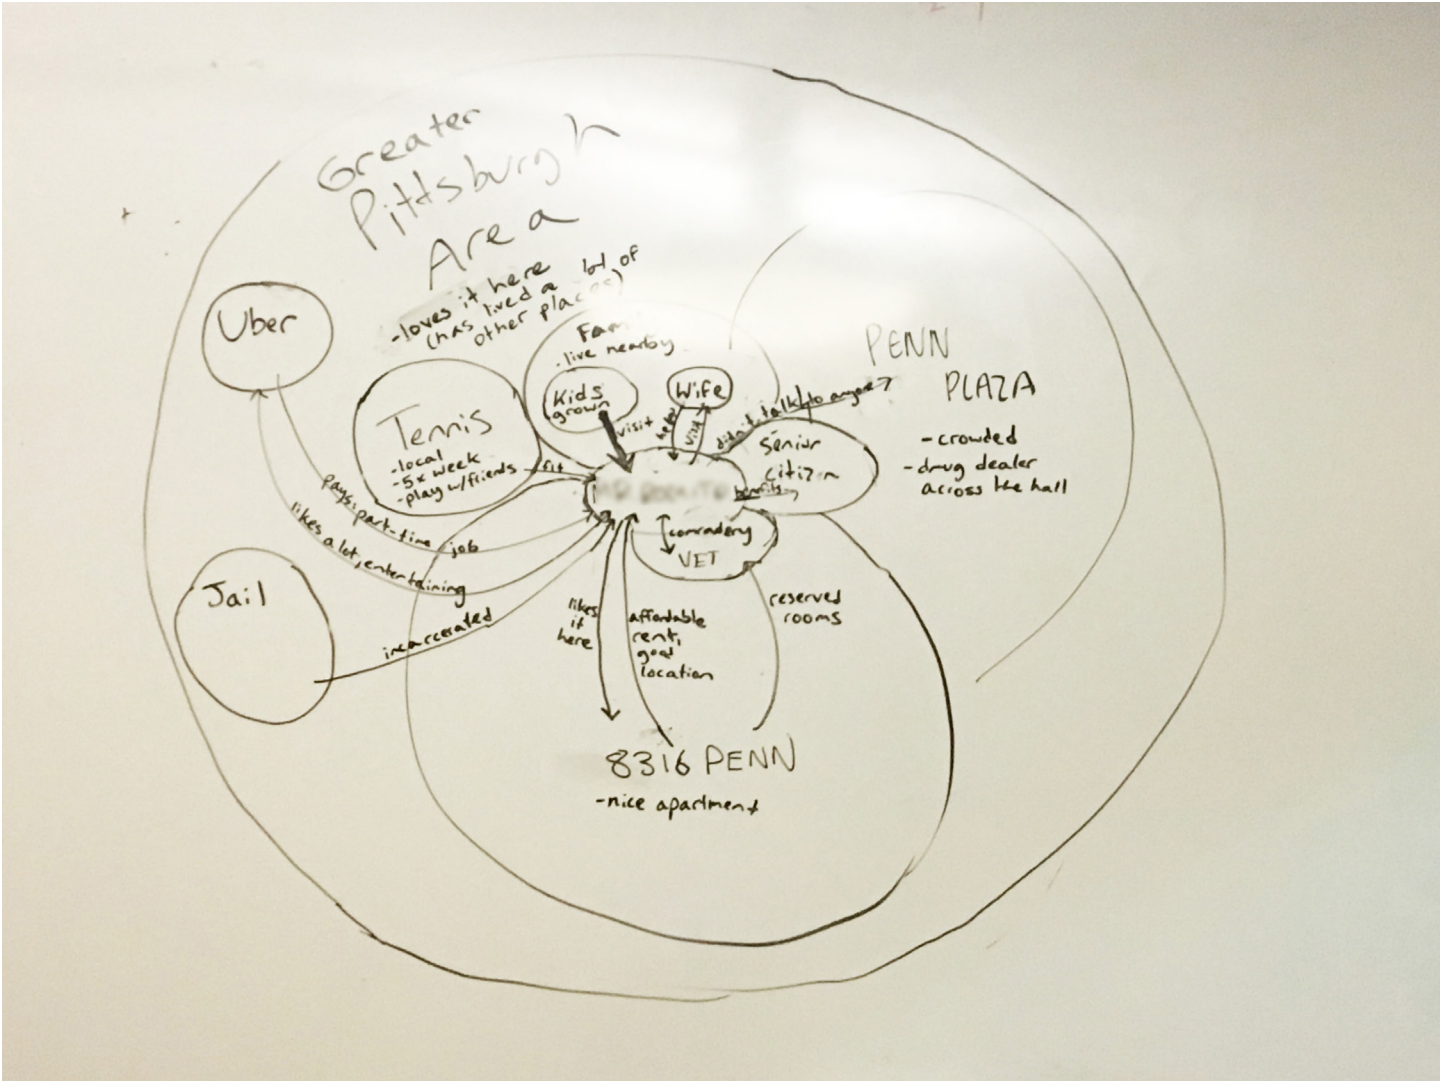 Greater
Pittsburgh
Area
-loves it here
(has lived a lot of
other places)
Uber
Fam
- live nearby
Kids
grown
Wife
visit
help
visit
didn't talk to anyone
PENN
PLAZA
- crowded
- drug dealer
across the hall
Tennis
-local
-5x week
-play w/friends
fit
Senior
Citizen
benefits
comradery
VET
pays: part-time job
likes a lot, entertaining
Jail
incarcerated
likes
it
here
affordable
rent,
good
location
reserved
rooms
8316 PENN
-nice apartment